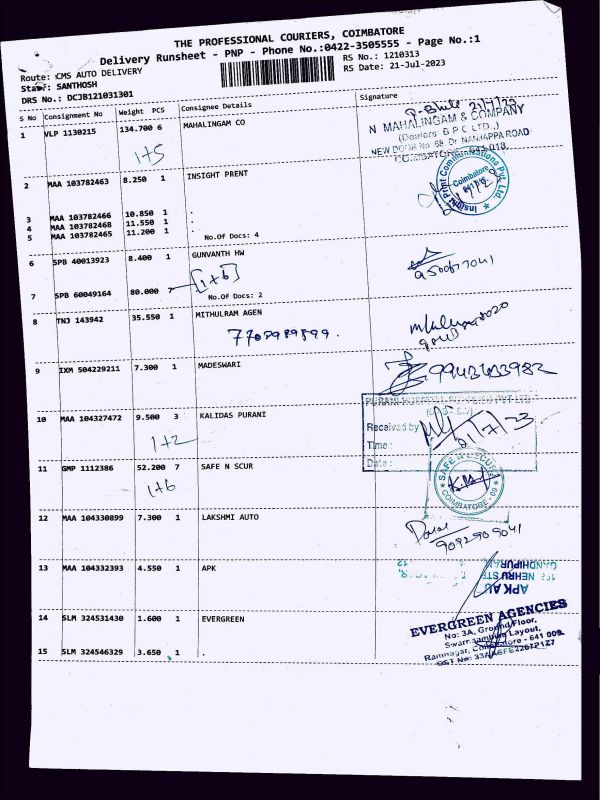 THE PROFESSIONAL COURIERS, COIMBATORE
Delivery Runsheet - PNP - Phone No.:0422-3505555 - Page No.:1
Route: CMS AUTO DELIVERY
RS No.: 1210313
Staff: SANTHOSH
RS Date: 21-Jul-2023
DRS No.: DCJB121031301
S No Consignment No Weight PCS Consignee Details Signature
1 VLP 1130215 134.700 6 MAHALINGAM CO
21/7/23
N MAHALINGAM & COMPANY
(Dealers B P C LTD.,)
NEW DOOR No 68, Dr NANJAPPA ROAD
1+5
2 MAA 103782463 8.250 1 INSIGHT PRENT
Insight Print Communications Pvt. Ltd.
Coimbatore
3 MAA 103782466 10.850 1 .
4 MAA 103782468 11.550 1 .
5 MAA 103782465 11.200 1 .
No.Of Docs: 4
6 SPB 40013923 8.400 1 GUNVANTH HW
[1+6]
7 SPB 60049164 80.000 7
No.Of Docs: 2
8 TNJ 143942 35.550 1 MITHULRAM AGEN
9 IXM 504229211 7.300 1 MADESWARI
10 MAA 104327472 9.500 3 KALIDAS PURANI
1+2
Received by
21/7/23
Time :
Date :
11 GMP 1112386 52.200 7 SAFE N SCUR
1+6
SAFE N SECURE
COIMBATORE - 09
12 MAA 104330899 7.300 1 LAKSHMI AUTO
13 MAA 104332393 4.550 1 APK
APK AU
NEHRU STR
GANDHIPUR
14 SLM 324531430 1.600 1 EVERGREEN
EVERGREEN AGENCIES
No: 3A, Ground Floor,
Layout,
Ramnagar, Coimbatore - 641 009.
15 SLM 324546329 3.650 1 .